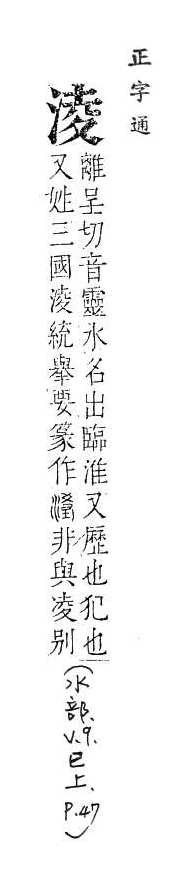 正字通
淩
離呈切音靈水名出臨淮又歷也犯也
又姓三國淩統舉要篆作㵄非與凌別
(水部、V.9.巳上、P.47)